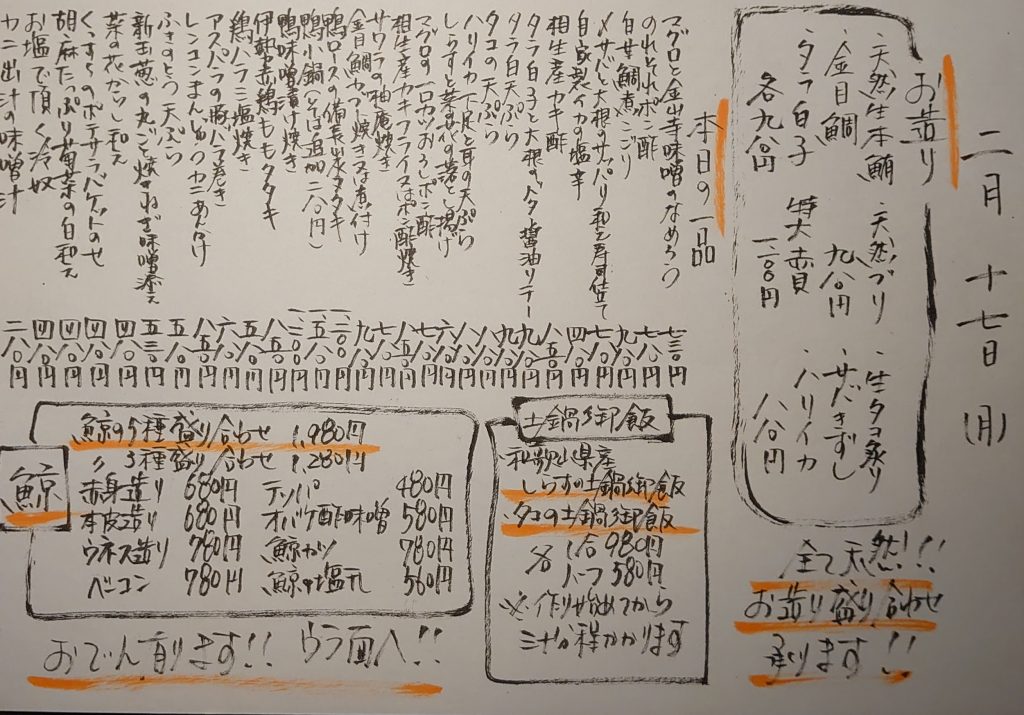 二月 十七日 (月)
お造り
・天然生本鮪 ・天然ブリ ・生タコ炙り
・金目鯛 九八〇円 ・サバきずし
・タラ白子 特大赤貝 ・ハリイカ
各九八〇円 一二八〇円 八八〇円
全て天然!!
お造り盛り合わせ
承ります!!
本日の一品
マグロと金山寺味噌のなめろう 七三〇円
のれそれポン酢 七八〇円
白甘鯛煮こごり
〆サバと大根のサッパリ和え寿司仕立て
自家製イカの塩辛
相生産カキ酢
タラ白子と大根のバター醤油ソテー
タラ白子天ぷら
タコの天ぷら
ハリイカ下足と耳の天ぷら
しらすと菜の花の落とし揚げ
マグロのホホカツおろしポン酢
相生産カキフライ又はポン酢焼き
サワラの柚庵焼き
金目鯛カブト焼き又は煮付け
鴨ロースの備長炭タタキ
鴨小鍋(そば追加二八〇円)
鴨味噌漬け焼き
伊勢赤鶏ももタタキ
鶏ハラミ塩焼き
アスパラの豚バラ巻き
レンコンまんじゅうカニあんかけ
ふきのとう天ぷら
新玉葱の丸ごと焼きねぎ味噌添え
菜の花からし和え
くんせいのポテサラバゲットのせ 四八〇円
胡麻たっぷり菊菜の白和え 四八〇円
お塩で頂く冷奴 四八〇円
カニ出汁の味噌汁 二八〇円
土鍋御飯
和歌山県産
しらすの土鍋御飯
タコの土鍋御飯
各 1合 980円
ハーフ 580円
※作り始めてから
三十分程かかります
鯨
鯨の5種盛り合わせ 1,980円
〃 3種盛り合わせ 1,280円
赤身造り 680円 テッパ 480円
本皮造り 680円 オバケ酢味噌 580円
ウネス造り 780円 鯨カツ 780円
ベーコン 780円 鯨の塩タレ 560円
おでん有ります!! ウラ面へ!!